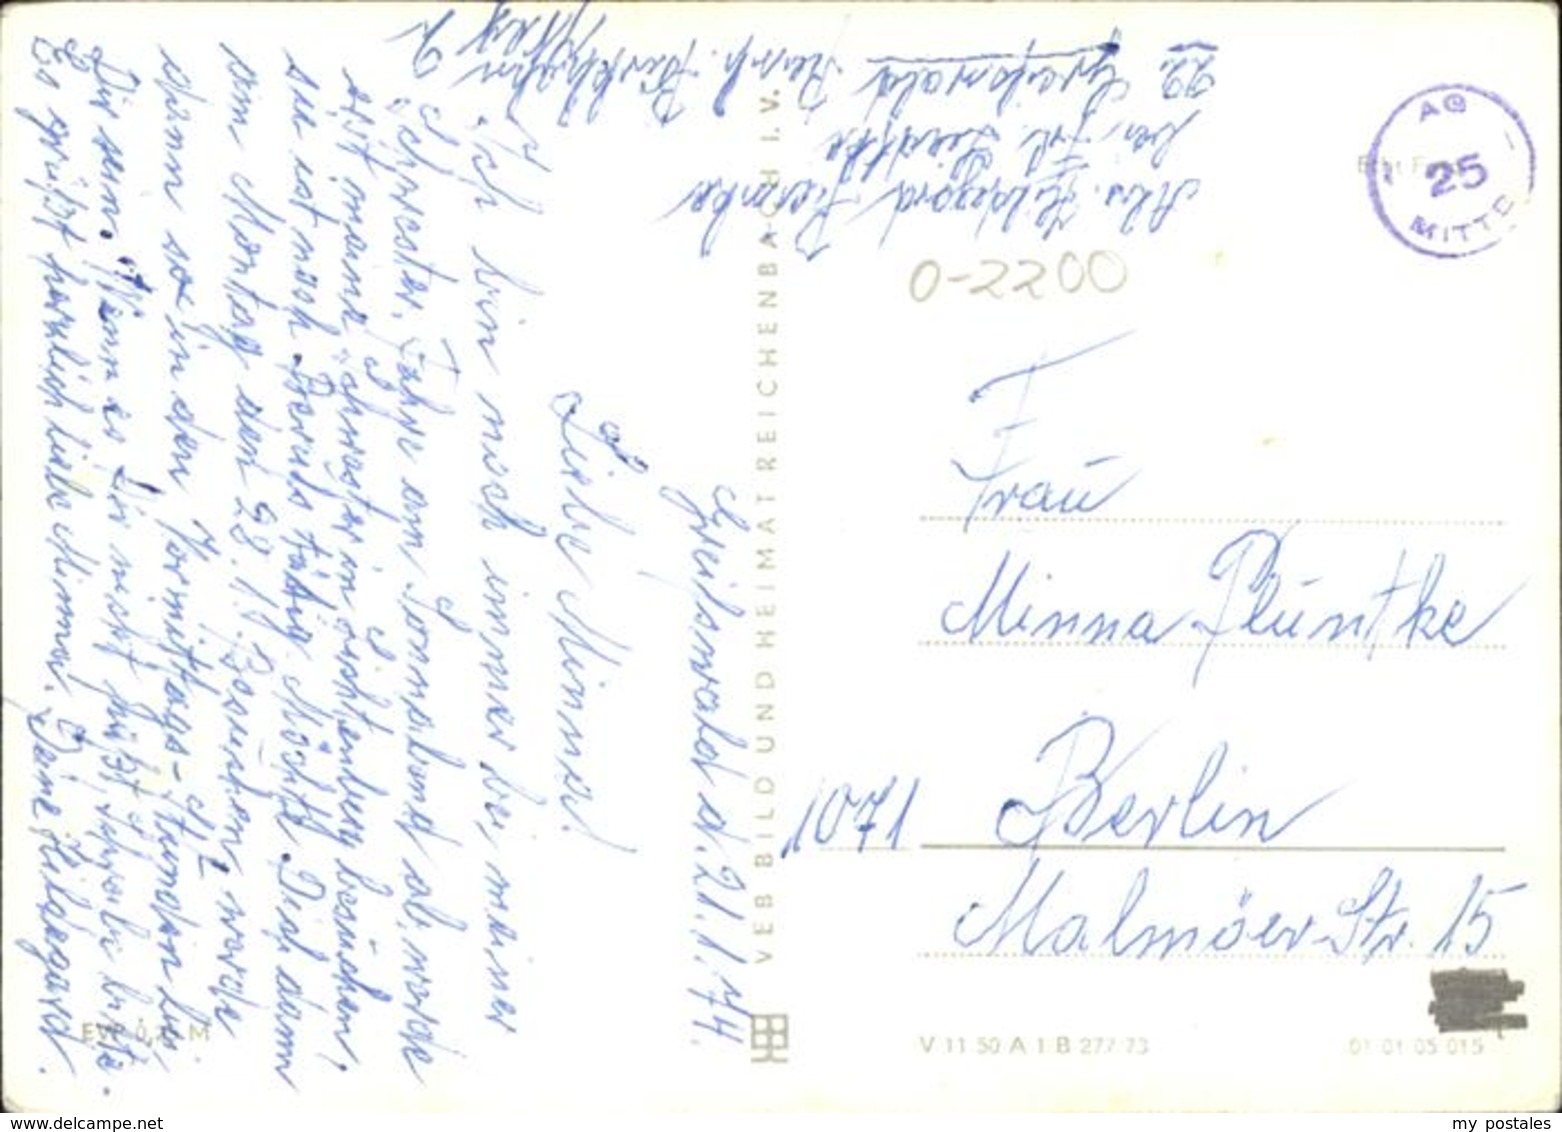 Greifswald d. 21.1.74.
Liebe Minna!
Ich bin noch immer bei meiner
Schwester. Fahre am Sonnabend ab, werde
erst meine Schwester in Lichtenberg besuchen,
sie ist noch Berufs tätig. Möchte Dich dann
am Montag den 28.1. besuchen, werde
dann so in den Vormittags-Stunden bei
Dir sein. Wenn es Dir nicht paßt, schreibe bitte.
Es grüßt herzlich liebe Minna. Deine Hildegard.
Abs. Hildegard
bei Frl.
22 Greifswald
Weg 2
VEB BILD UND HEIMAT REICHENBACH I.V.
AG
25
MITTE
0-2200
Frau
Minna Pluntke
1071 Berlin
Malmöer Str. 15
V 11 50 A 1 B 277 73
01 01 05 015
EVP 0, M
www.delcampe.net
my_postales